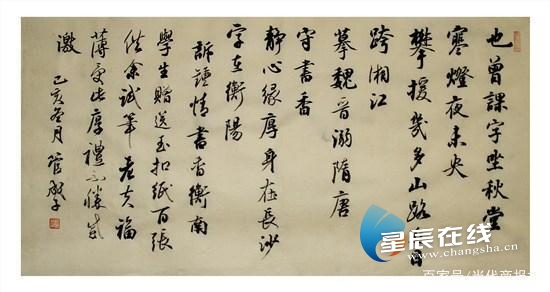 也曾課字坐秋堂
寒燈夜未央
攀援幾多山路
跨湘江
摹魏晉溺隋唐
守書香
靜心緣厚身在長沙
字在衡陽
訴情書香衡南
學生贈送玉扣紙百張
供余試筆老夫福
薄受此厚禮不勝感
激 己亥冬月
星辰在线
百家号/当代商报